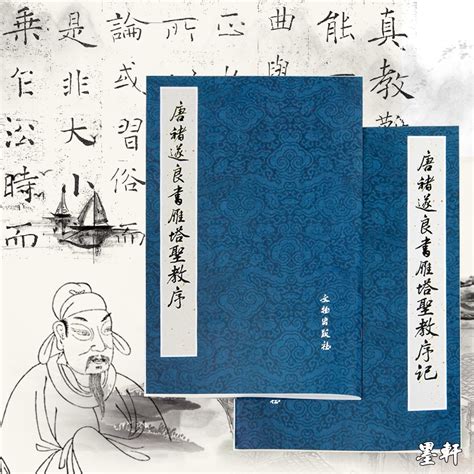 真教難
能
曲學
正
論或習俗而
是非大小
乘乍沿時而
唐褚遂良書雁塔聖教序記
唐褚遂良書雁塔聖教序
文物出版社
墨軒